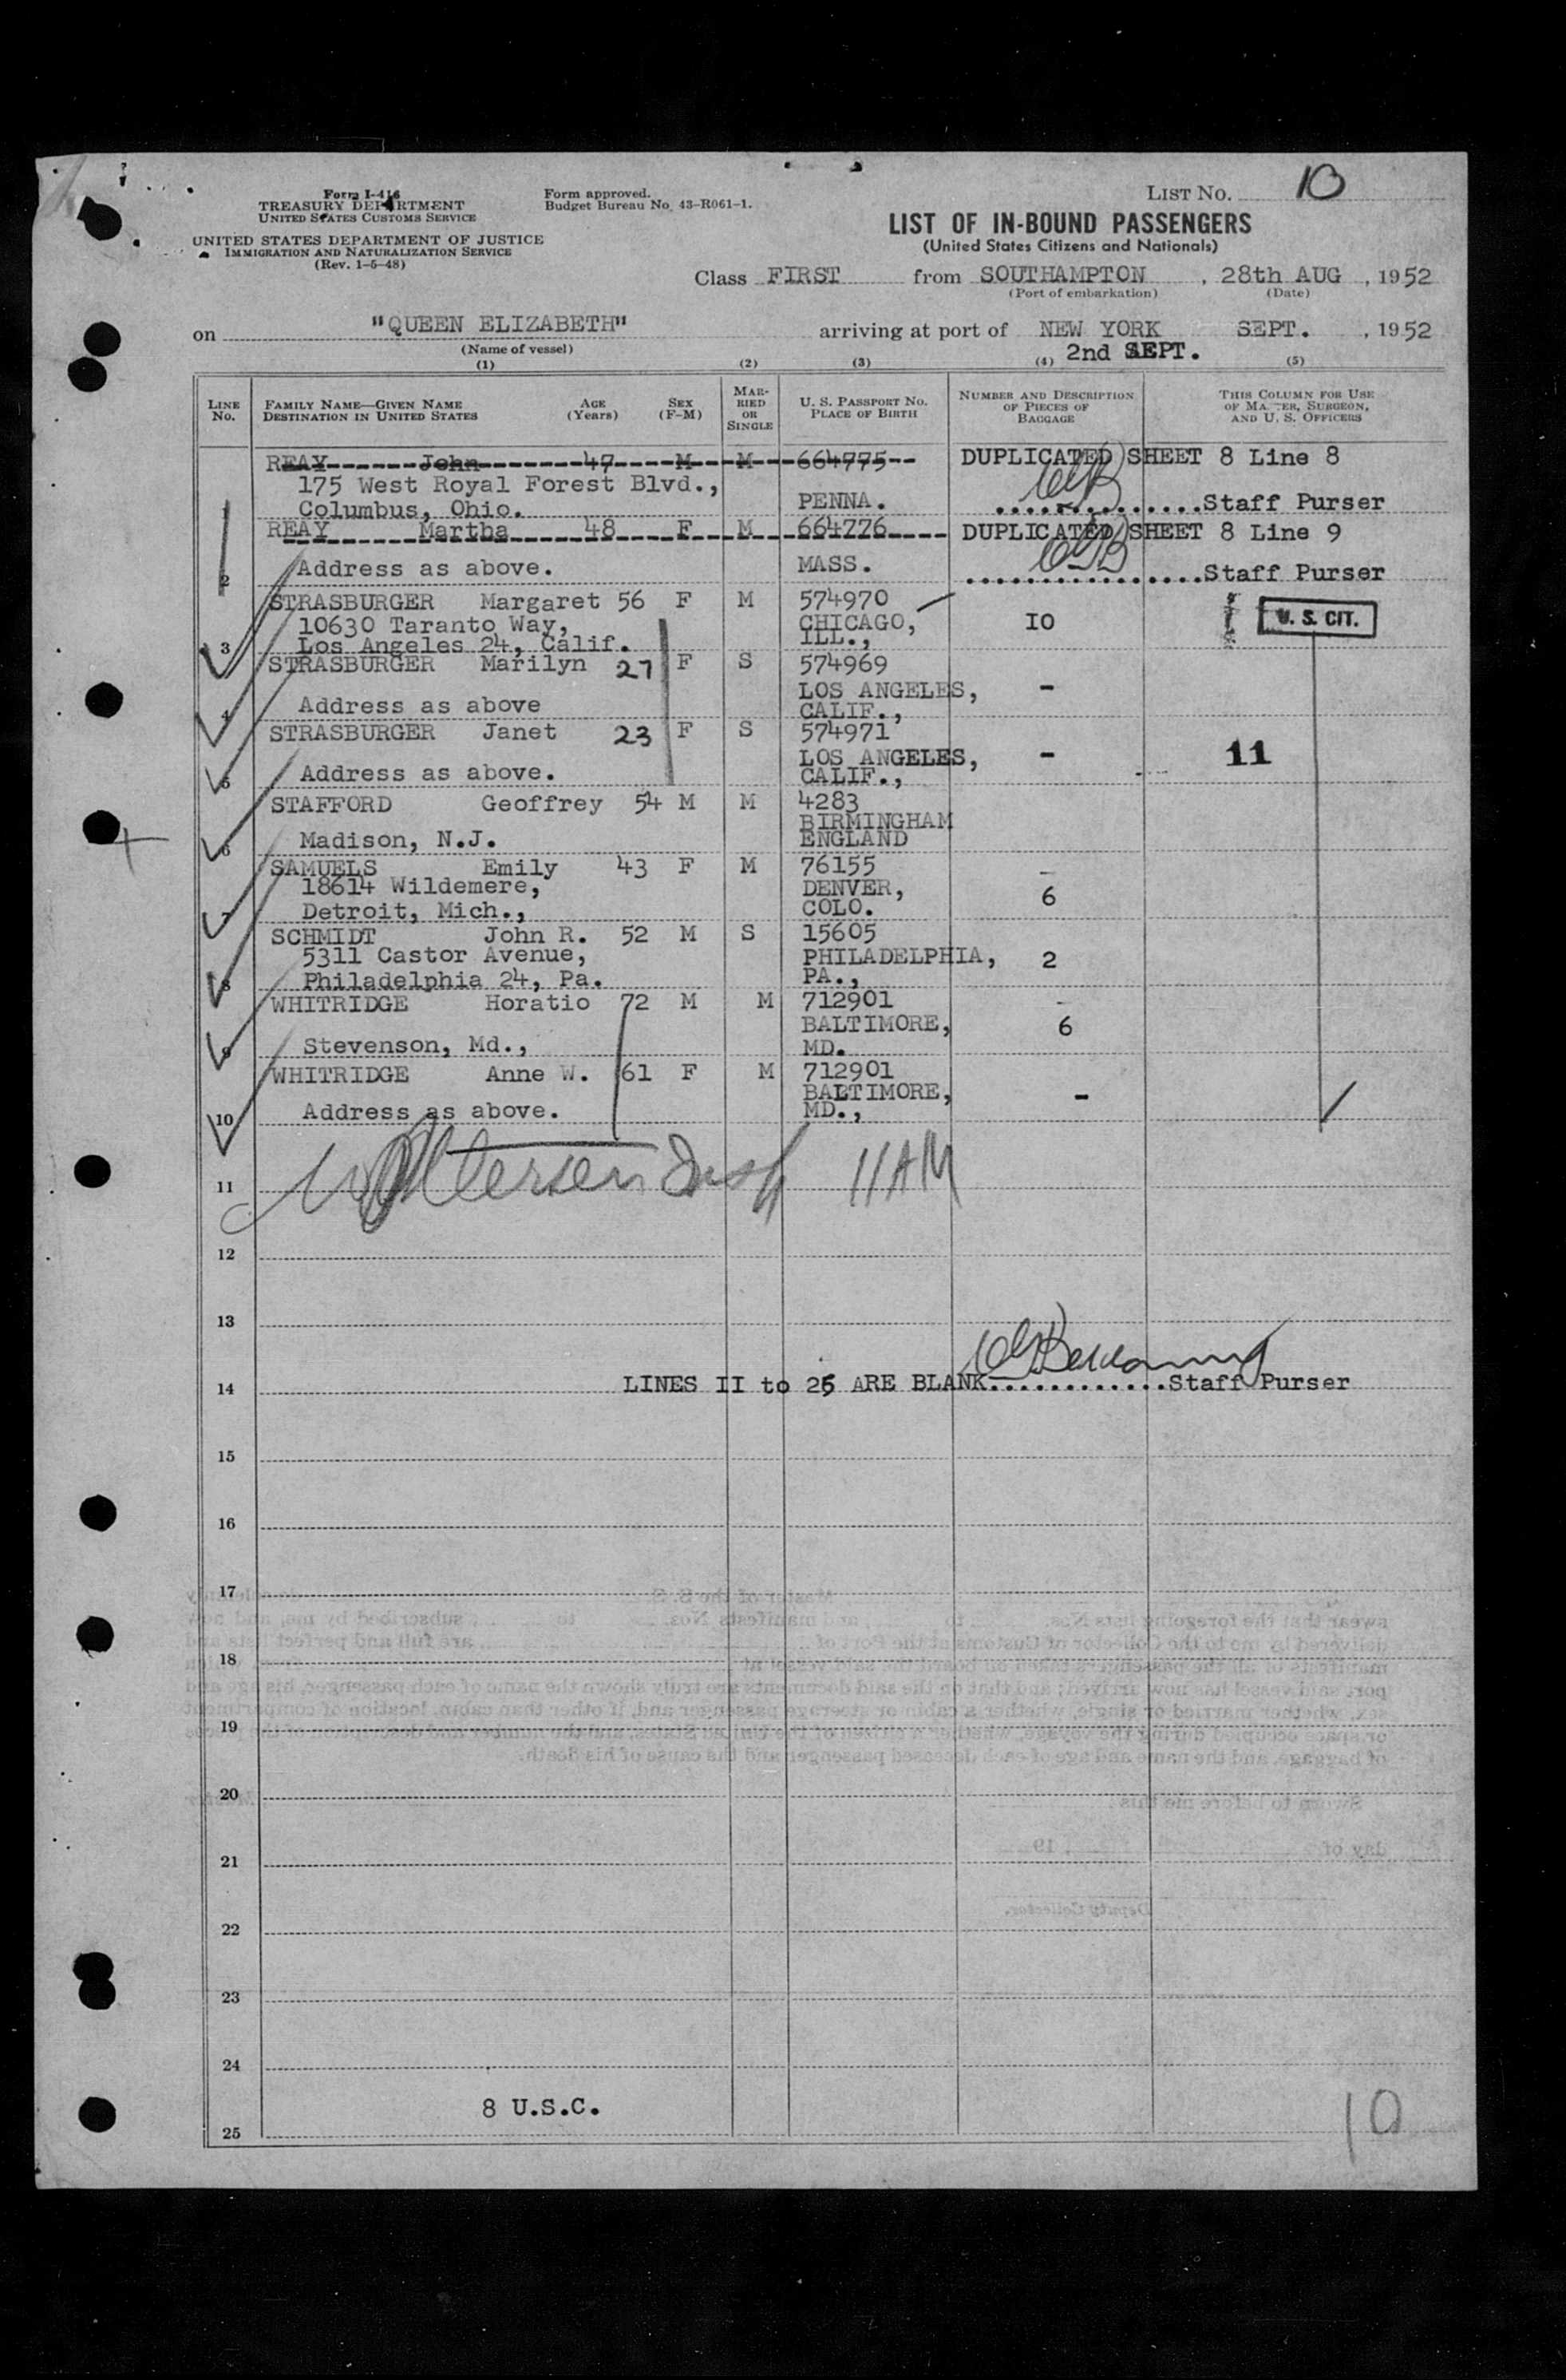 Form I-416
TREASURY DEPARTMENT
UNITED STATES CUSTOMS SERVICE
UNITED STATES DEPARTMENT OF JUSTICE
IMMIGRATION AND NATURALIZATION SERVICE
(Rev. 1-5-48)
Form approved.
Budget Bureau No. 43-R061-1.
LIST NO. 10
LIST OF IN-BOUND PASSENGERS
(United States Citizens and Nationals)
Class FIRST from SOUTHAMPTON, 28th AUG, 1952
(Port of embarkation) (Date)
on "QUEEN ELIZABETH" arriving at port of NEW YORK SEPT., 1952
(Name of vessel) 2nd SEPT.
(1) (2) (3) (4) (5)
LINE No. FAMILY NAME—GIVEN NAME DESTINATION IN UNITED STATES AGE (Years) SEX (F-M) MARRIED OR SINGLE U. S. PASSPORT NO. PLACE OF BIRTH NUMBER AND DESCRIPTION OF PIECES OF BAGGAGE THIS COLUMN FOR USE OF MASTER, SURGEON, AND U. S. OFFICERS
REAY John 47 M M 664775 DUPLICATED SHEET 8 Line 8
175 West Royal Forest Blvd.,
Columbus, Ohio. PENNA. Staff Purser
REAY Martha 48 F M 664776 DUPLICATED SHEET 8 Line 9
2 Address as above. MASS. Staff Purser
STRASBURGER Margaret 56 F M 574970
10630 Taranto Way, CHICAGO, IO U. S. CIT.
3 Los Angeles 24, Calif. ILL.,
STRASBURGER Marilyn 27 F S 574969
LOS ANGELES, -
4 Address as above CALIF.,
STRASBURGER Janet 23 F S 574971
LOS ANGELES, - 11
5 Address as above. CALIF.,
STAFFORD Geoffrey 54 M M 4283
BIRMINGHAM
6 Madison, N.J. ENGLAND
SAMUELS Emily 43 F M 76155
18614 Wildemere, DENVER, 6
7 Detroit, Mich., COLO.
SCHMIDT John R. 52 M S 15605
5311 Castor Avenue, PHILADELPHIA, 2
8 Philadelphia 24, Pa. PA.,
WHITRIDGE Horatio 72 M M 712901
BALTIMORE, 6
9 Stevenson, Md., MD.
WHITRIDGE Anne W. 61 F M 712901
BALTIMORE, -
10 Address as above. MD.,
11 11 AM
12
13
14 LINES II to 25 ARE BLANK.............Staff Purser
15
16
17
18
19
20
21
22
23
24
8 U.S.C.
25
10